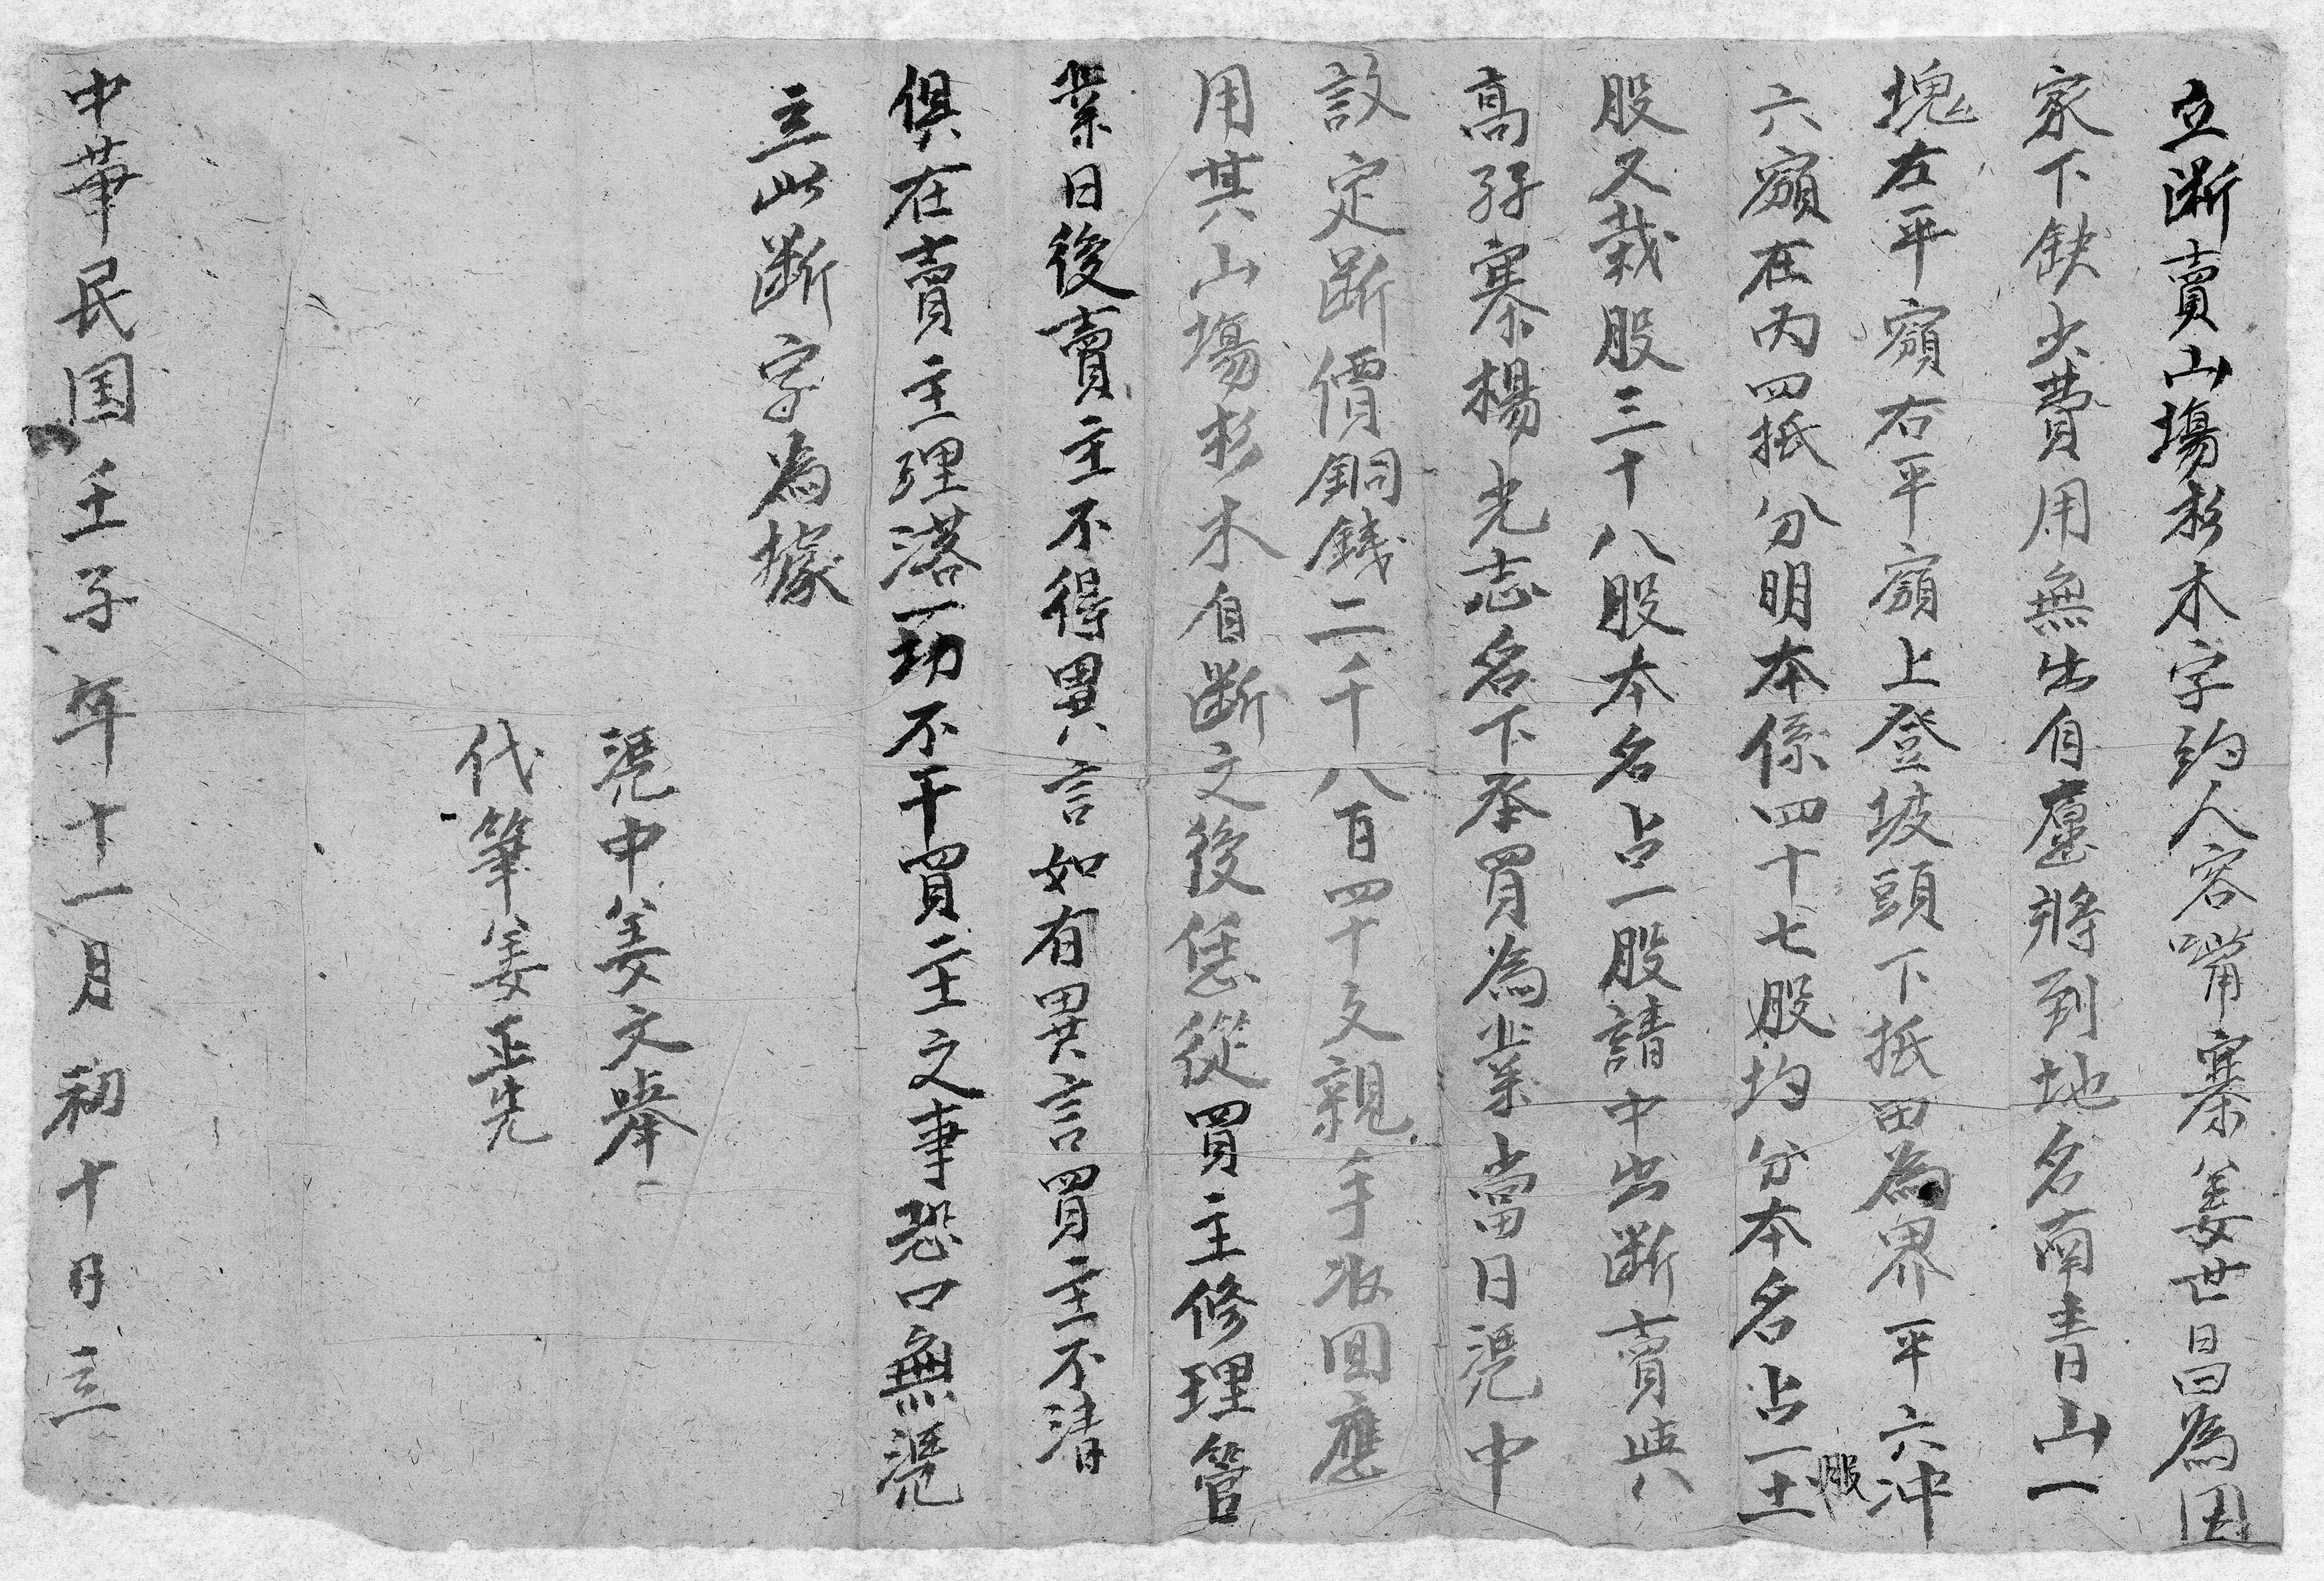 立断賣山塲杉木字約人容嘴寨姜世昌為因
家下缺少費用無出自愿將到地名南青山一
塊左平嶺右平嶺上登坡頭下抵田為界平六冲
六嶺在内四抵分明本係四十七股均分本名占一土
股
股又栽股三十八股本名占一股請中出断賣與
高孖寨楊光志名下承買為業當日凴中
議定断價銅錢二千八百四十文親手收回應
用其山塲杉木自断之後恁從買主修理管
業日後賣主不得異言如有異言買主不清
俱在賣主理落一切不干買主之事恐口無凴
立此断字為據
凴中姜文舉
代筆姜正先
中華民国壬子年十一月初十日立